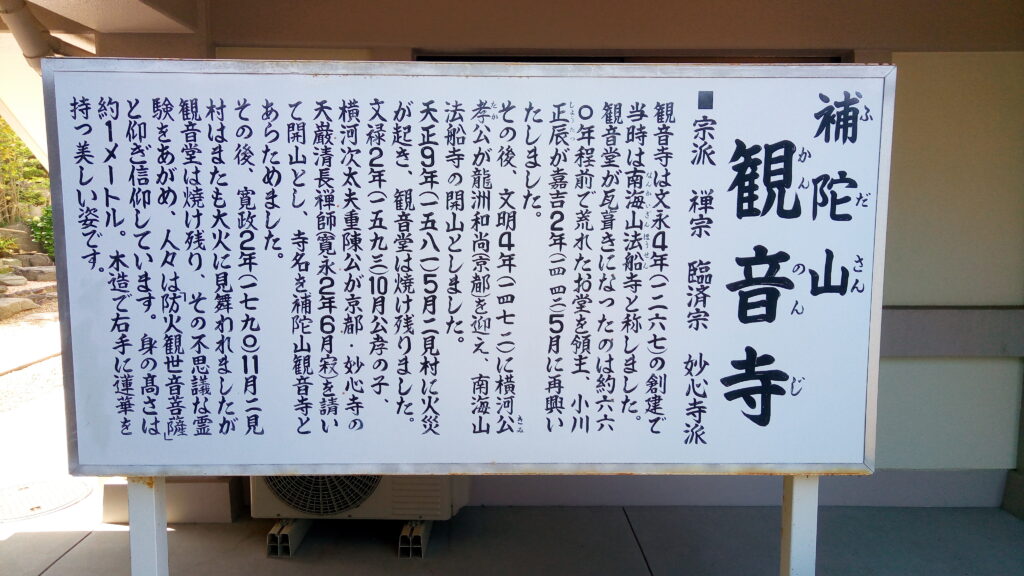 補陀山
ふださん
観音寺
かんのんじ
■宗派 禅宗 臨済宗 妙心寺派
観音寺は文永4年(一二六七)の創建で
当時は南海山法船寺と称しました。
観音堂が瓦葺きになったのは約六六
〇年程前で荒れたお堂を領主、小川
正辰が嘉吉2年(一四四二)5月に再興い
たしました。
その後、文明4年(一四七二)に横河公
孝公が龍洲和尚(京都)を迎え、南海山
法船寺の開山としました。
天正9年(一五八一)5月二見村に火災
が起き、観音堂は焼け残りました。
文禄2年(一五九三)10月公孝の子、
横河次太夫重陳公が京都・妙心寺の
天厳清長禅師(寛永2年6月寂)を請い
て開山とし、寺名を補陀山観音寺と
あらためました。
その後、寛政2年(一七九〇)11月二見
村はまたも大火に見舞われましたが
観音堂は焼け残り、その不思議な霊
験をあがめ、人々は「防火観世音菩薩」
と仰ぎ信仰しています。身の髙さは
約1メートル。木造で右手に蓮華を
持つ美しい姿です。